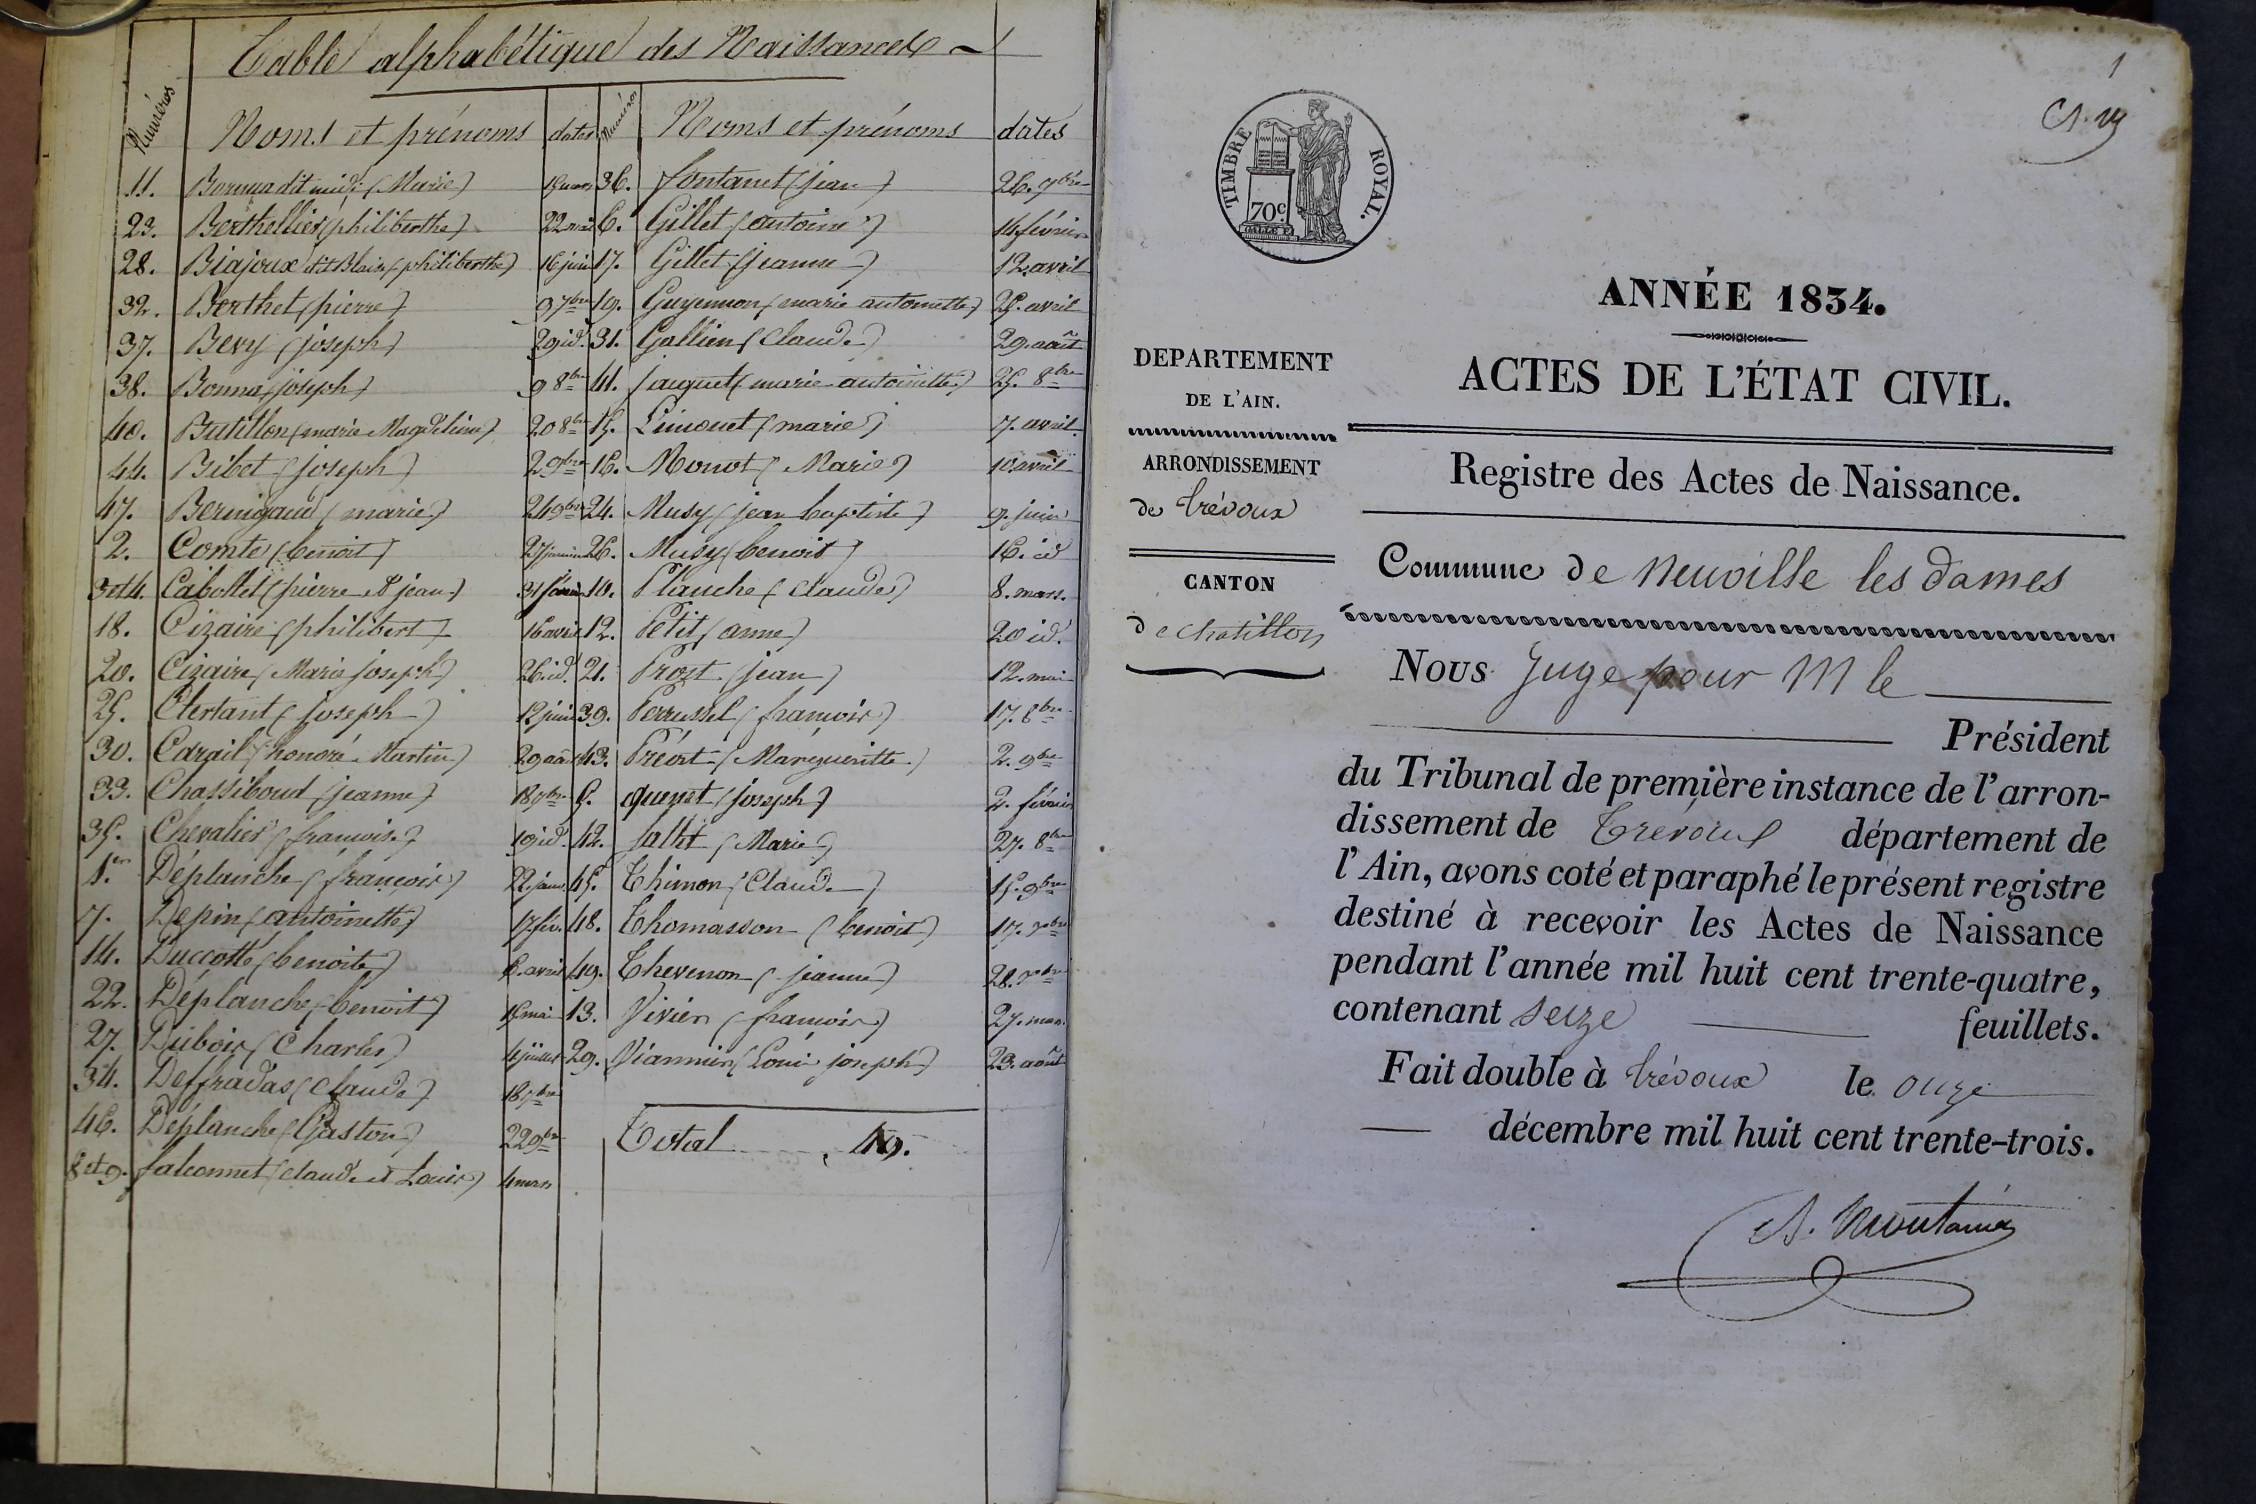 Table alphabétique des Naissances
Numéros
Noms et prénoms
dates
11. Bornua dit midi (Marie) 15 mars
23. Berthellier (philiberthe) 22 mai
28. Biajoux dit Blaise (philiberthe) 16 juin
32. Berthet (pierre) 9 7bre
37. Bevy (joseph) 29 id.
38. Bonna (joseph) 9 8bre
40. Butillon (marie Magdeleine) 20 8bre
44. Bibet (joseph) 2 9bre
47. Beringaud (marie) 24 9bre
2. Comte (benoit) 27 janvier
3 et 4. Cabottet (pierre et jean) 31 janvier
18. Cizaire (philibert) 16 avril
20. Cizaire (Marie joseph) 26 id.
25. Clertant (joseph) 12 juin
30. Carail (honoré Martin) 29 août
33. Chassiboud (jeanne) 18 7bre
35. Chevalier (françois) 19 id.
1.er Déplanche (françois) 22 janv.
7. Depin (antoinette) 17 fév.
14. Duccotté (benoite) 6. avril
22. Déplanche (benoit) 15 mai
27. Dubois (Charles) 4 juillet
34. Deffradas (Claude) 18 7bre
46. Déplanche (Gaston) 22 9bre
8 et 9. falconnet (claude et Louis) 4 mars
Numéros
Noms et prénoms
dates
36. fontanet (jean) 26. 7bre
6. Gillet (antoine) 14 février
17. Gillet (jeanne) 12. avril
19. Guyennon (marie antoinette) 25. avril
31. Gallien (Claude) 29. août
41. jauguet (marie antoinette) 25. 8bre
15. Limonet (marie) 7. avril
16. Monot (Marie) 10 avril
24. Musy (jean baptiste) 9. juin
26. Musy (benoit) 16. id
10. Planche (Claude) 8. mars.
12. Petit (anne) 20 id.
21. Prost (jean) 12. mai
39. Perrussel (françois) 17. 8bre
43. Préost (Margueritte) 2. 9bre
5. queyat (joseph) 2. février
42. Sallet (Marie) 27. 8bre
45. Thimon (Claude) 15. 9bre
48. Thomasson (benoit) 17. xbre
49. Thevenon (jeanne) 28. xbre
13. Vivier (françois) 27. mars.
29. Viannier (Louis joseph) 23. août
Total 49.
1
TIMBRE ROYAL.
70c.
ANNÉE 1834.
DEPARTEMENT
DE L'AIN.
ARRONDISSEMENT
de trévoux
CANTON
de chatillon
ACTES DE L'ÉTAT CIVIL.
Registre des Actes de Naissance.
Commune de Neuville les dames
Nous Juge pour M le
Président
du Tribunal de première instance de l'arron-
dissement de Trévoux département de
l'Ain, avons coté et paraphé le présent registre
destiné à recevoir les Actes de Naissance
pendant l'année mil huit cent trente-quatre,
contenant seize feuillets.
Fait double à trévoux le onze
décembre mil huit cent trente-trois.